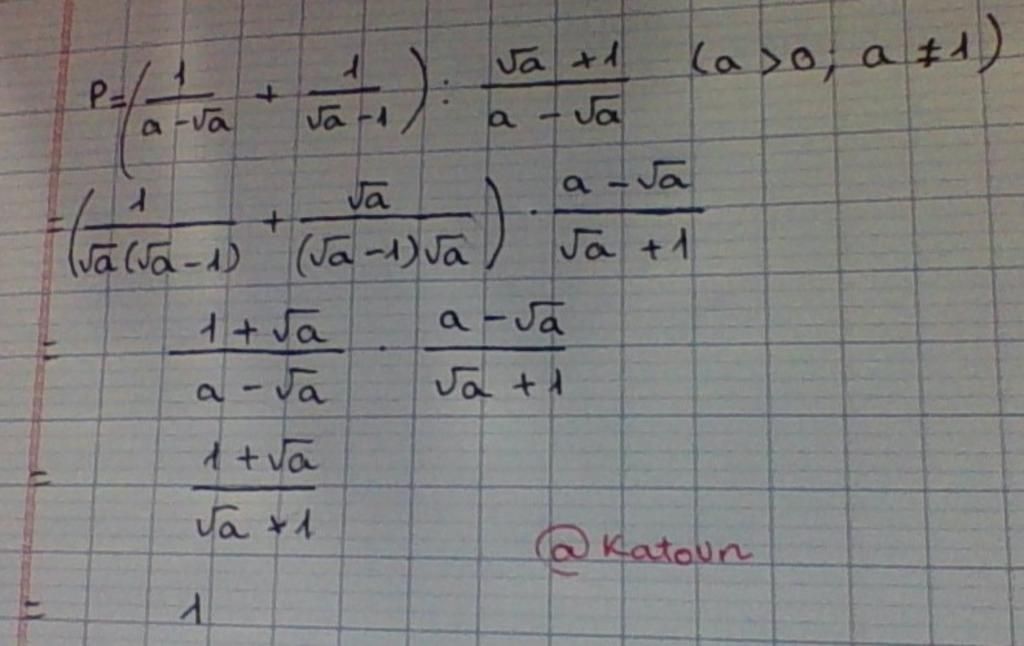 P=(1/(a-√a) + 1/(√a-1)) : (√a+1)/(a-√a) (a>0; a≠1)
=(1/(√a(√a-1)) + √a/((√a-1)√a)) · (a-√a)/(√a+1)
= (1+√a)/(a-√a) · (a-√a)/(√a+1)
= (1+√a)/(√a+1)
@Katoun
= 1